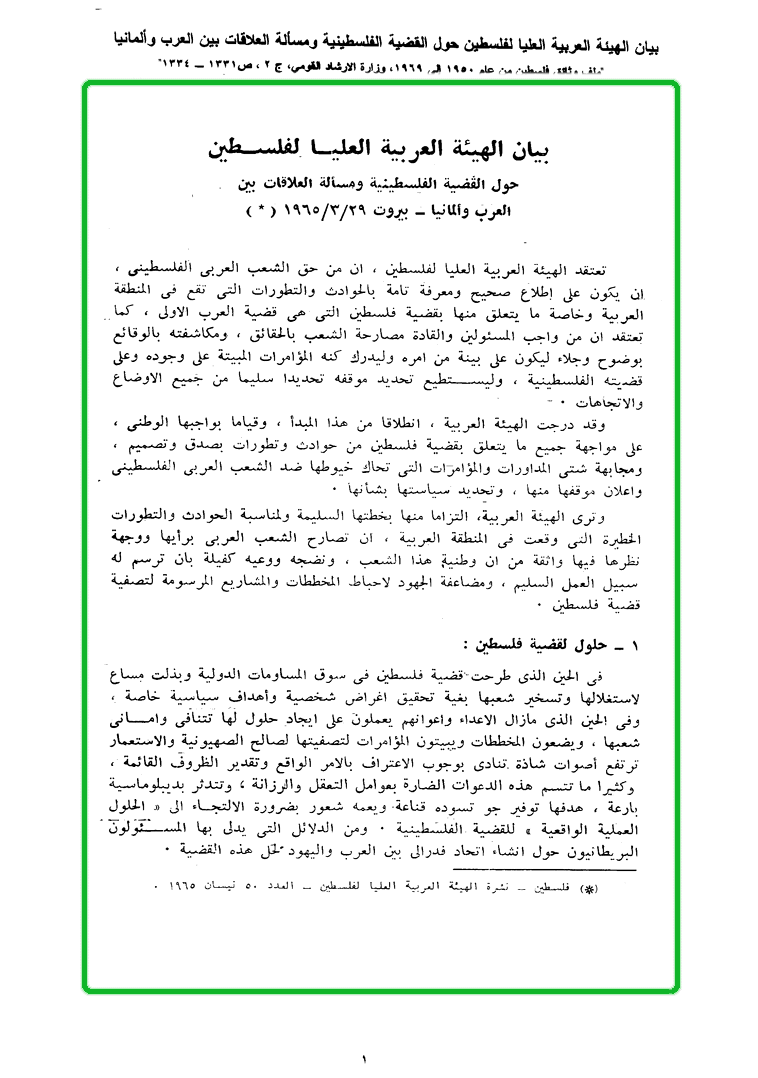 بيان الهيئة العربية العليا لفلسطين حول القضية الفلسطينية ومسألة العلاقات بين العرب وألمانيا
"ملف وثائق فلسطين من عام ١٩٥٠ إلى ١٩٦٩، وزارة الارشاد القومي، ج ٢ ، ص ١٣٣١ – ١٣٣٤"
بيان الهيئة العربية العليا لفلسطين
حول القضية الفلسطينية ومسألة العلاقات بين
العرب وألمانيا – بيروت ١٩٦٥/٣/٢٩ ( * )
تعتقد الهيئة العربية العليا لفلسطين ، ان من حق الشعب العربى الفلسطينى ،
ان يكون على إطلاع صحيح ومعرفة تامة بالحوادث والتطورات التى تقع فى المنطقة
العربية وخاصة ما يتعلق منها بقضية فلسطين التى هى قضية العرب الاولى ، كما
تعتقد ان من واجب المسئولين والقادة مصارحة الشعب بالحقائق ، ومكاشفته بالوقائع
بوضوح وجلاء ليكون على بينة من امره وليدرك كنه المؤامرات المبيتة على وجوده وعلى
قضيته الفلسطينية ، وليستطيع تحديد موقفه تحديدا سليما من جميع الاوضاع
والاتجاهات ٠
وقد درجت الهيئة العربية ، انطلاقا من هذا المبدأ ، وقياما بواجبها الوطنى ،
على مواجهة جميع ما يتعلق بقضية فلسطين من حوادث وتطورات بصدق وتصميم ،
ومجابهة شتى المداورات والمؤامرات التى تحاك خيوطها ضد الشعب العربى الفلسطينى
واعلان موقفها منها ، وتحديد سياستها بشأنها ٠
وترى الهيئة العربية، التزاما منها بخطتها السليمة ولمناسبة الحوادث والتطورات
الخطيرة التى وقعت فى المنطقة العربية ، ان تصارح الشعب العربى برأيها ووجهة
نظرها فيها واثقة من ان وطنية هذا الشعب ، ونضجه ووعيه كفيلة بان ترسم له
سبيل العمل السليم ، ومضاعفة الجهود لاحباط المخططات والمشاريع المرسومة لتصفية
قضية فلسطين ٠
١ – حلول لقضية فلسطين :
فى الحين الذى طرحت قضية فلسطين فى سوق المساومات الدولية وبذلت مساع
لاستغلالها وتسخير شعبها بغية تحقيق اغراض شخصية وأهداف سياسية خاصة ،
وفى الحين الذى مازال الاعداء واعوانهم يعملون على ايجاد حلول لها تتنافى وامانى
شعبها ، ويضعون المخططات ويبيتون المؤامرات لتصفيتها لصالح الصهيونية والاستعمار
ترتفع أصوات شاذة تنادى بوجوب الاعتراف بالامر الواقع وتقدير الظروف القائمة ،
وكثيرا ما تتسم هذه الدعوات الضارة بعوامل التعقل والرزانة ، وتتدثر بدبلوماسية
بارعة ، هدفها توفير جو تسوده قناعة ويعمه شعور بضرورة الالتجاء الى « الحلول
العملية الواقعية » للقضية الفلسطينية ٠ ومن الدلائل التى يدلى بها المسئولون
البريطانيون حول انشاء اتحاد فدرالى بين العرب واليهود لحل هذه القضية ٠
(*) فلسطين – نشرة الهيئة العربية العليا لفلسطين – العدد ٥٠ نيسان ١٩٦٥ .
١